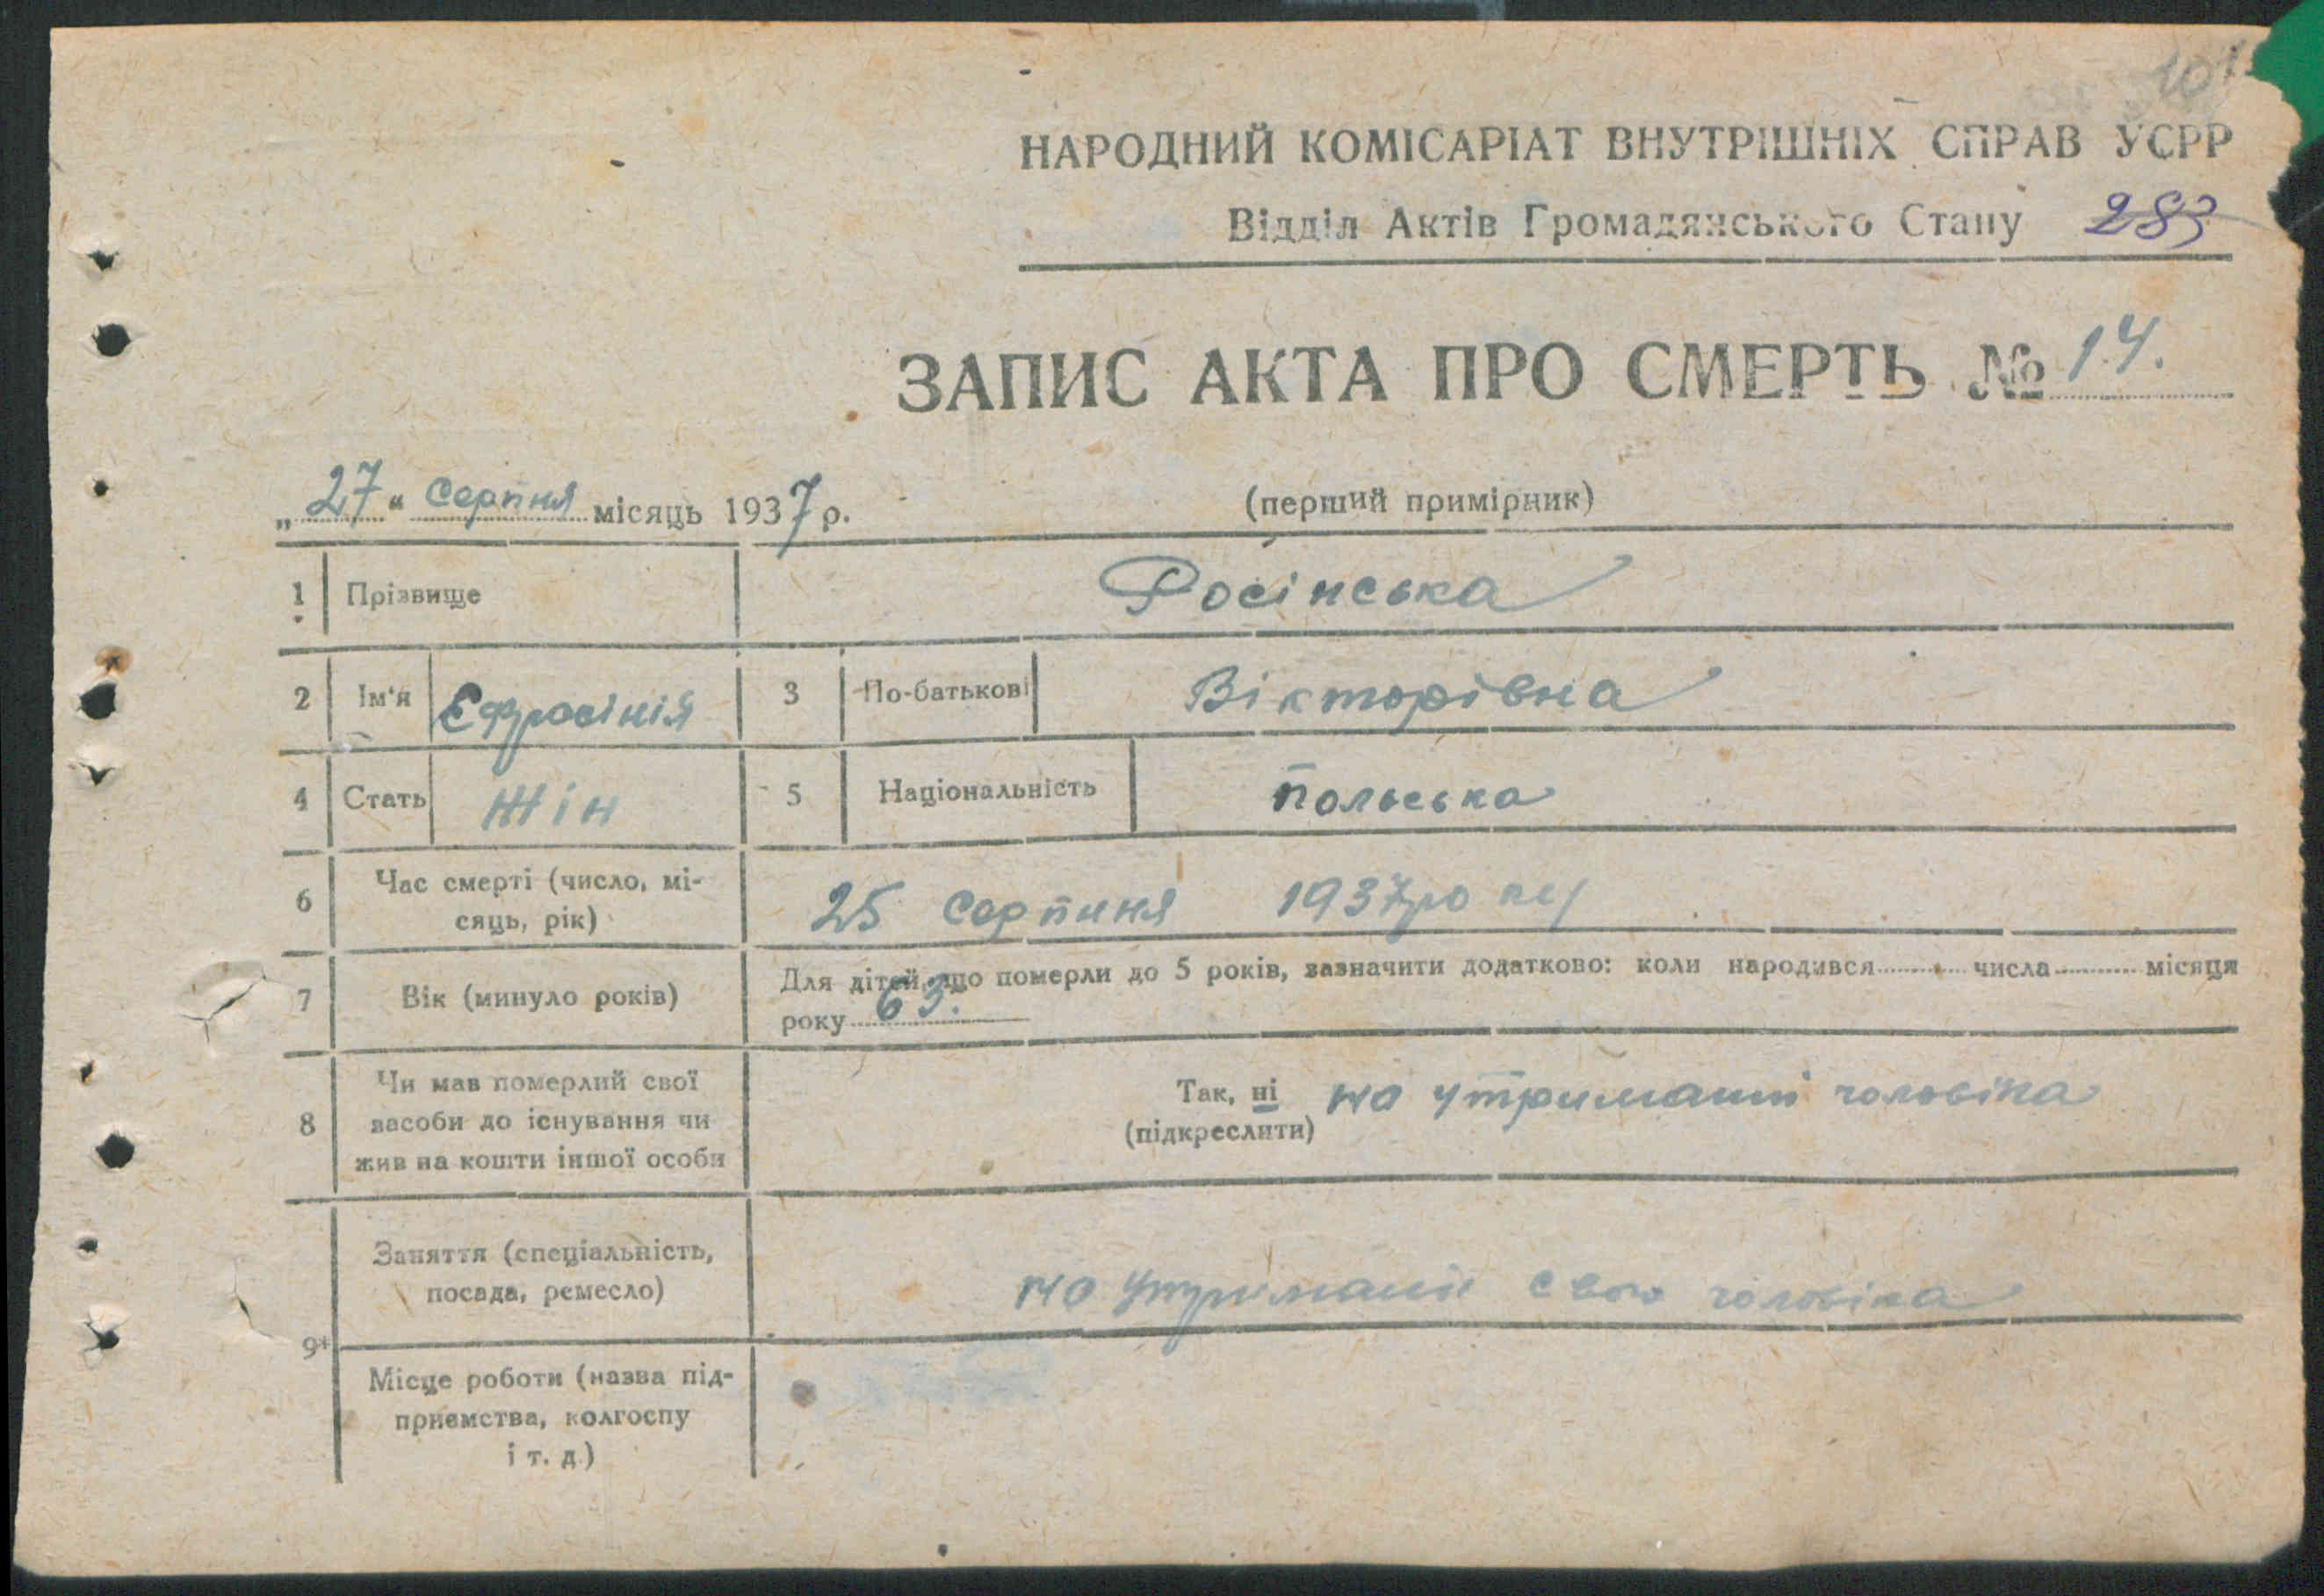 101
НАРОДНИЙ КОМІСАРІАТ ВНУТРІШНІХ СПРАВ УСРР
Відділ Актів Громадянського Стану 283
ЗАПИС АКТА ПРО СМЕРТЬ № 14.
„27“ серпня місяць 1937 р.
(перший примірник)
1 Прізвище Росінська
2 Ім'я Єфросінія 3 По-батькові Вікторівна
4 Стать Жін 5 Національність польська
6 Час смерті (число, мі-
сяць, рік) 25 серпня 1937 року
7 Вік (минуло років) Для дітей, що померли до 5 років, зазначити додатково: коли народився числа місяця
року 63.
8 Чи мав померлий свої
засоби до існування чи
жив на кошти іншої особи
Так, ні на утриманні чоловіка
(підкреслити)
9 Заняття (спеціальність,
посада, ремесло) на утриманні свого чоловіка
Місце роботи (назва під-
приємства, колгоспу
і т. д.)